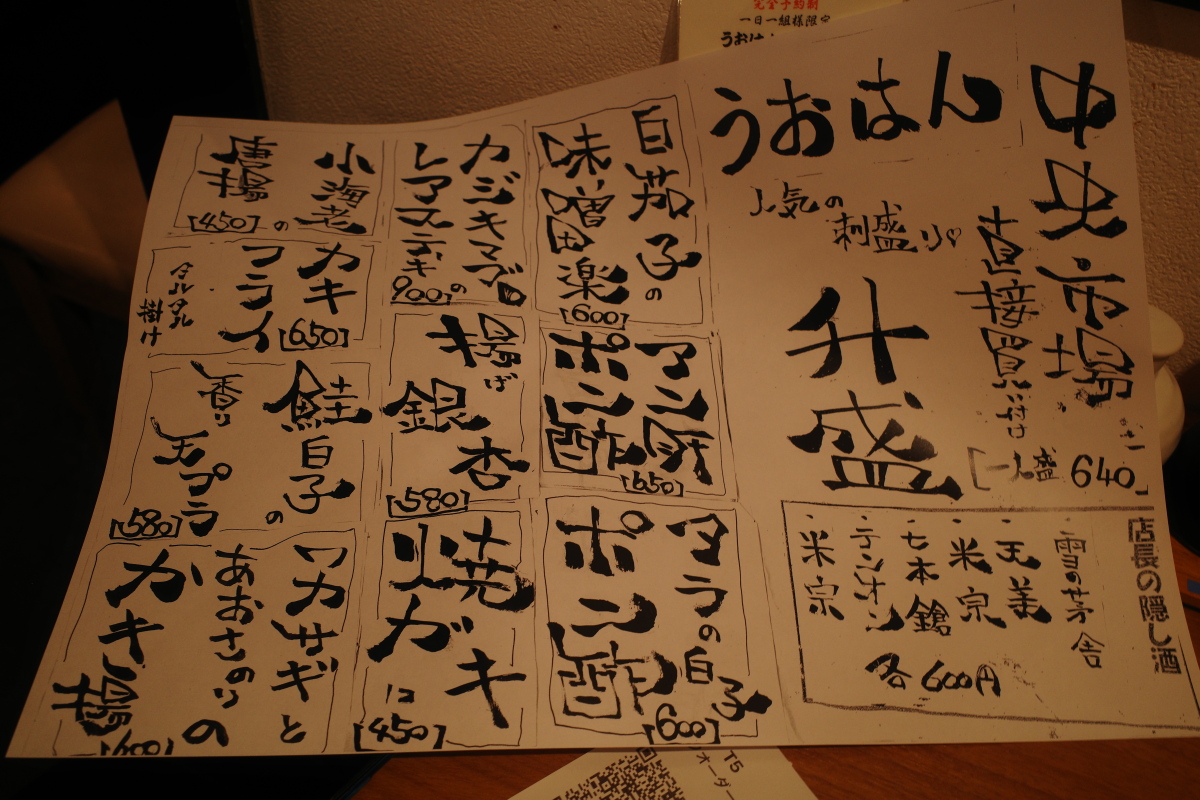 完全予約制
一日一組様限定
うおはん
中央市場に
直接買い付け
うおはん
人気の
刺盛り♡
升
盛
[一人盛 640]
店長の隠し酒
・雪の茅舎
・玉善
・米宗
・七本鎗
・テンオン
・米宗
各600円
白茄子の
味噌田楽
[600]
アン肝
ポン酢
[650]
タラの白子
ポン酢
[600]
カジキマグロの
レアステーキ
900
揚げ
銀杏
[580]
焼
ガキ
[450]
小海老の
唐揚
[450]
カキ
フライ
[650]
タルタル
掛け
鮭白子の
香り
天プラ
[580]
ワカサギと
あおさのりの
かき揚
[600]
T5
オーダー